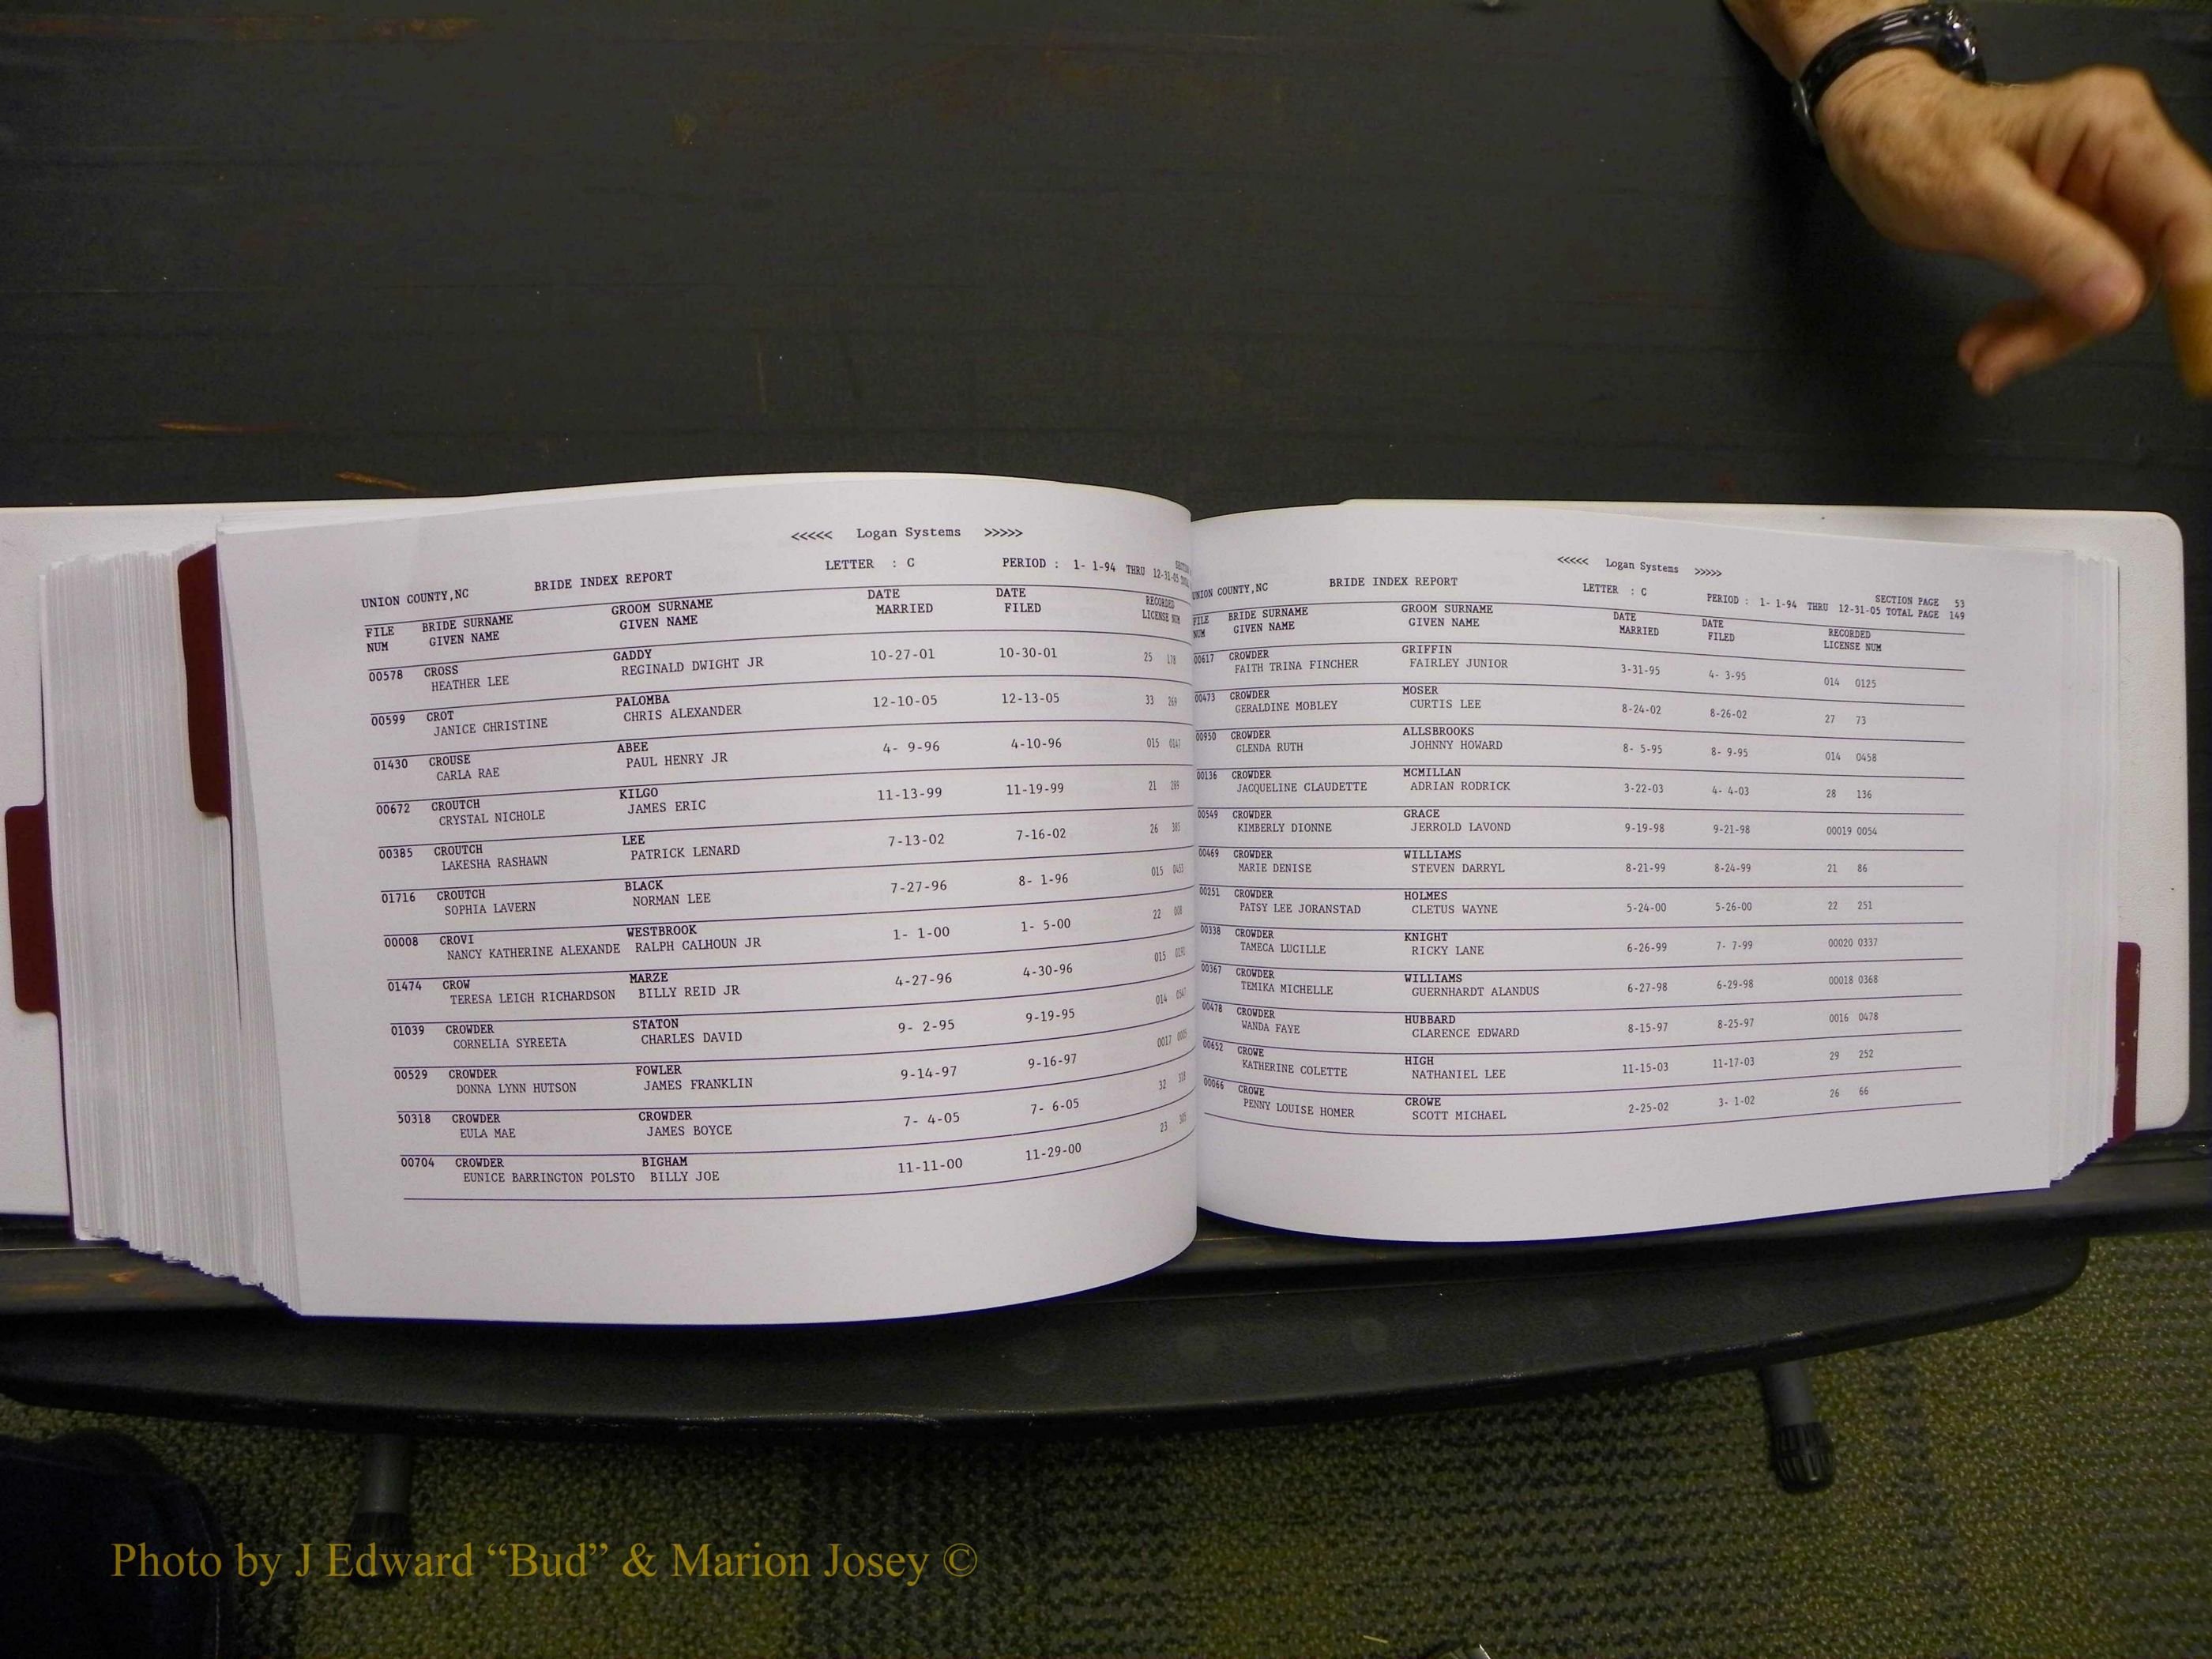 <<<<< Logan Systems >>>>>
UNION COUNTY,NC BRIDE INDEX REPORT LETTER : C PERIOD : 1- 1-94 THRU 12-31-05
FILE BRIDE SURNAME GROOM SURNAME DATE DATE RECORDED
NUM GIVEN NAME GIVEN NAME MARRIED FILED LICENSE NUM
00578 CROSS GADDY 10-27-01 10-30-01 25 178
HEATHER LEE REGINALD DWIGHT JR
00599 CROT PALOMBA 12-10-05 12-13-05 33 269
JANICE CHRISTINE CHRIS ALEXANDER
01430 CROUSE ABEE 4- 9-96 4-10-96 015
CARLA RAE PAUL HENRY JR
00672 CROUTCH KILGO 11-13-99 11-19-99 21
CRYSTAL NICHOLE JAMES ERIC
00385 CROUTCH LEE 7-13-02 7-16-02 26
LAKESHA RASHAWN PATRICK LENARD
01716 CROUTCH BLACK 7-27-96 8- 1-96 015
SOPHIA LAVERN NORMAN LEE
00008 CROVI WESTBROOK 1- 1-00 1- 5-00 22
NANCY KATHERINE ALEXANDE RALPH CALHOUN JR
01474 CROW MARZE 4-27-96 4-30-96 015
TERESA LEIGH RICHARDSON BILLY REID JR
01039 CROWDER STATON 9- 2-95 9-19-95 014
CORNELIA SYREETA CHARLES DAVID
00529 CROWDER FOWLER 9-14-97 9-16-97 0017
DONNA LYNN HUTSON JAMES FRANKLIN
50318 CROWDER CROWDER 7- 4-05 7- 6-05 32
EULA MAE JAMES BOYCE
00704 CROWDER BIGHAM 11-11-00 11-29-00 23
EUNICE BARRINGTON POLSTO BILLY JOE
<<<<< Logan Systems >>>>>
SECTION PAGE 53
UNION COUNTY,NC BRIDE INDEX REPORT LETTER : C PERIOD : 1- 1-94 THRU 12-31-05 TOTAL PAGE 149
FILE BRIDE SURNAME GROOM SURNAME DATE DATE RECORDED
NUM GIVEN NAME GIVEN NAME MARRIED FILED LICENSE NUM
00617 CROWDER GRIFFIN 3-31-95 4- 3-95 014 0125
FAITH TRINA FINCHER FAIRLEY JUNIOR
00473 CROWDER MOSER 8-24-02 8-26-02 27 73
GERALDINE MOBLEY CURTIS LEE
00950 CROWDER ALLSBROOKS 8- 5-95 8- 9-95 014 0458
GLENDA RUTH JOHNNY HOWARD
00136 CROWDER MCMILLAN 3-22-03 4- 4-03 28 136
JACQUELINE CLAUDETTE ADRIAN RODRICK
00549 CROWDER GRACE 9-19-98 9-21-98 00019 0054
KIMBERLY DIONNE JERROLD LAVOND
00469 CROWDER WILLIAMS 8-21-99 8-24-99 21 86
MARIE DENISE STEVEN DARRYL
00251 CROWDER HOLMES 5-24-00 5-26-00 22 251
PATSY LEE JORANSTAD CLETUS WAYNE
00338 CROWDER KNIGHT 6-26-99 7- 7-99 00020 0337
TAMECA LUCILLE RICKY LANE
00367 CROWDER WILLIAMS 6-27-98 6-29-98 00018 0368
TEMIKA MICHELLE GUERNHARDT ALANDUS
00478 CROWDER HUBBARD 8-15-97 8-25-97 0016 0478
WANDA FAYE CLARENCE EDWARD
00652 CROWE HIGH 11-15-03 11-17-03 29 252
KATHERINE COLETTE NATHANIEL LEE
00066 CROWE CROWE 2-25-02 3- 1-02 26 66
PENNY LOUISE HOMER SCOTT MICHAEL
Photo by J Edward “Bud” & Marion Josey ©